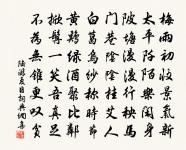 梅雨初收景氣新
太平阡陌樂閑身
陂塘漫漫行秧馬
門巷陰陰挂艾人
白葛烏紗稱時節
黃雞綠酒聚比鄰
掀髯一笑吾真足
不為無錐更嘆貧
陸游夏日詞典網集